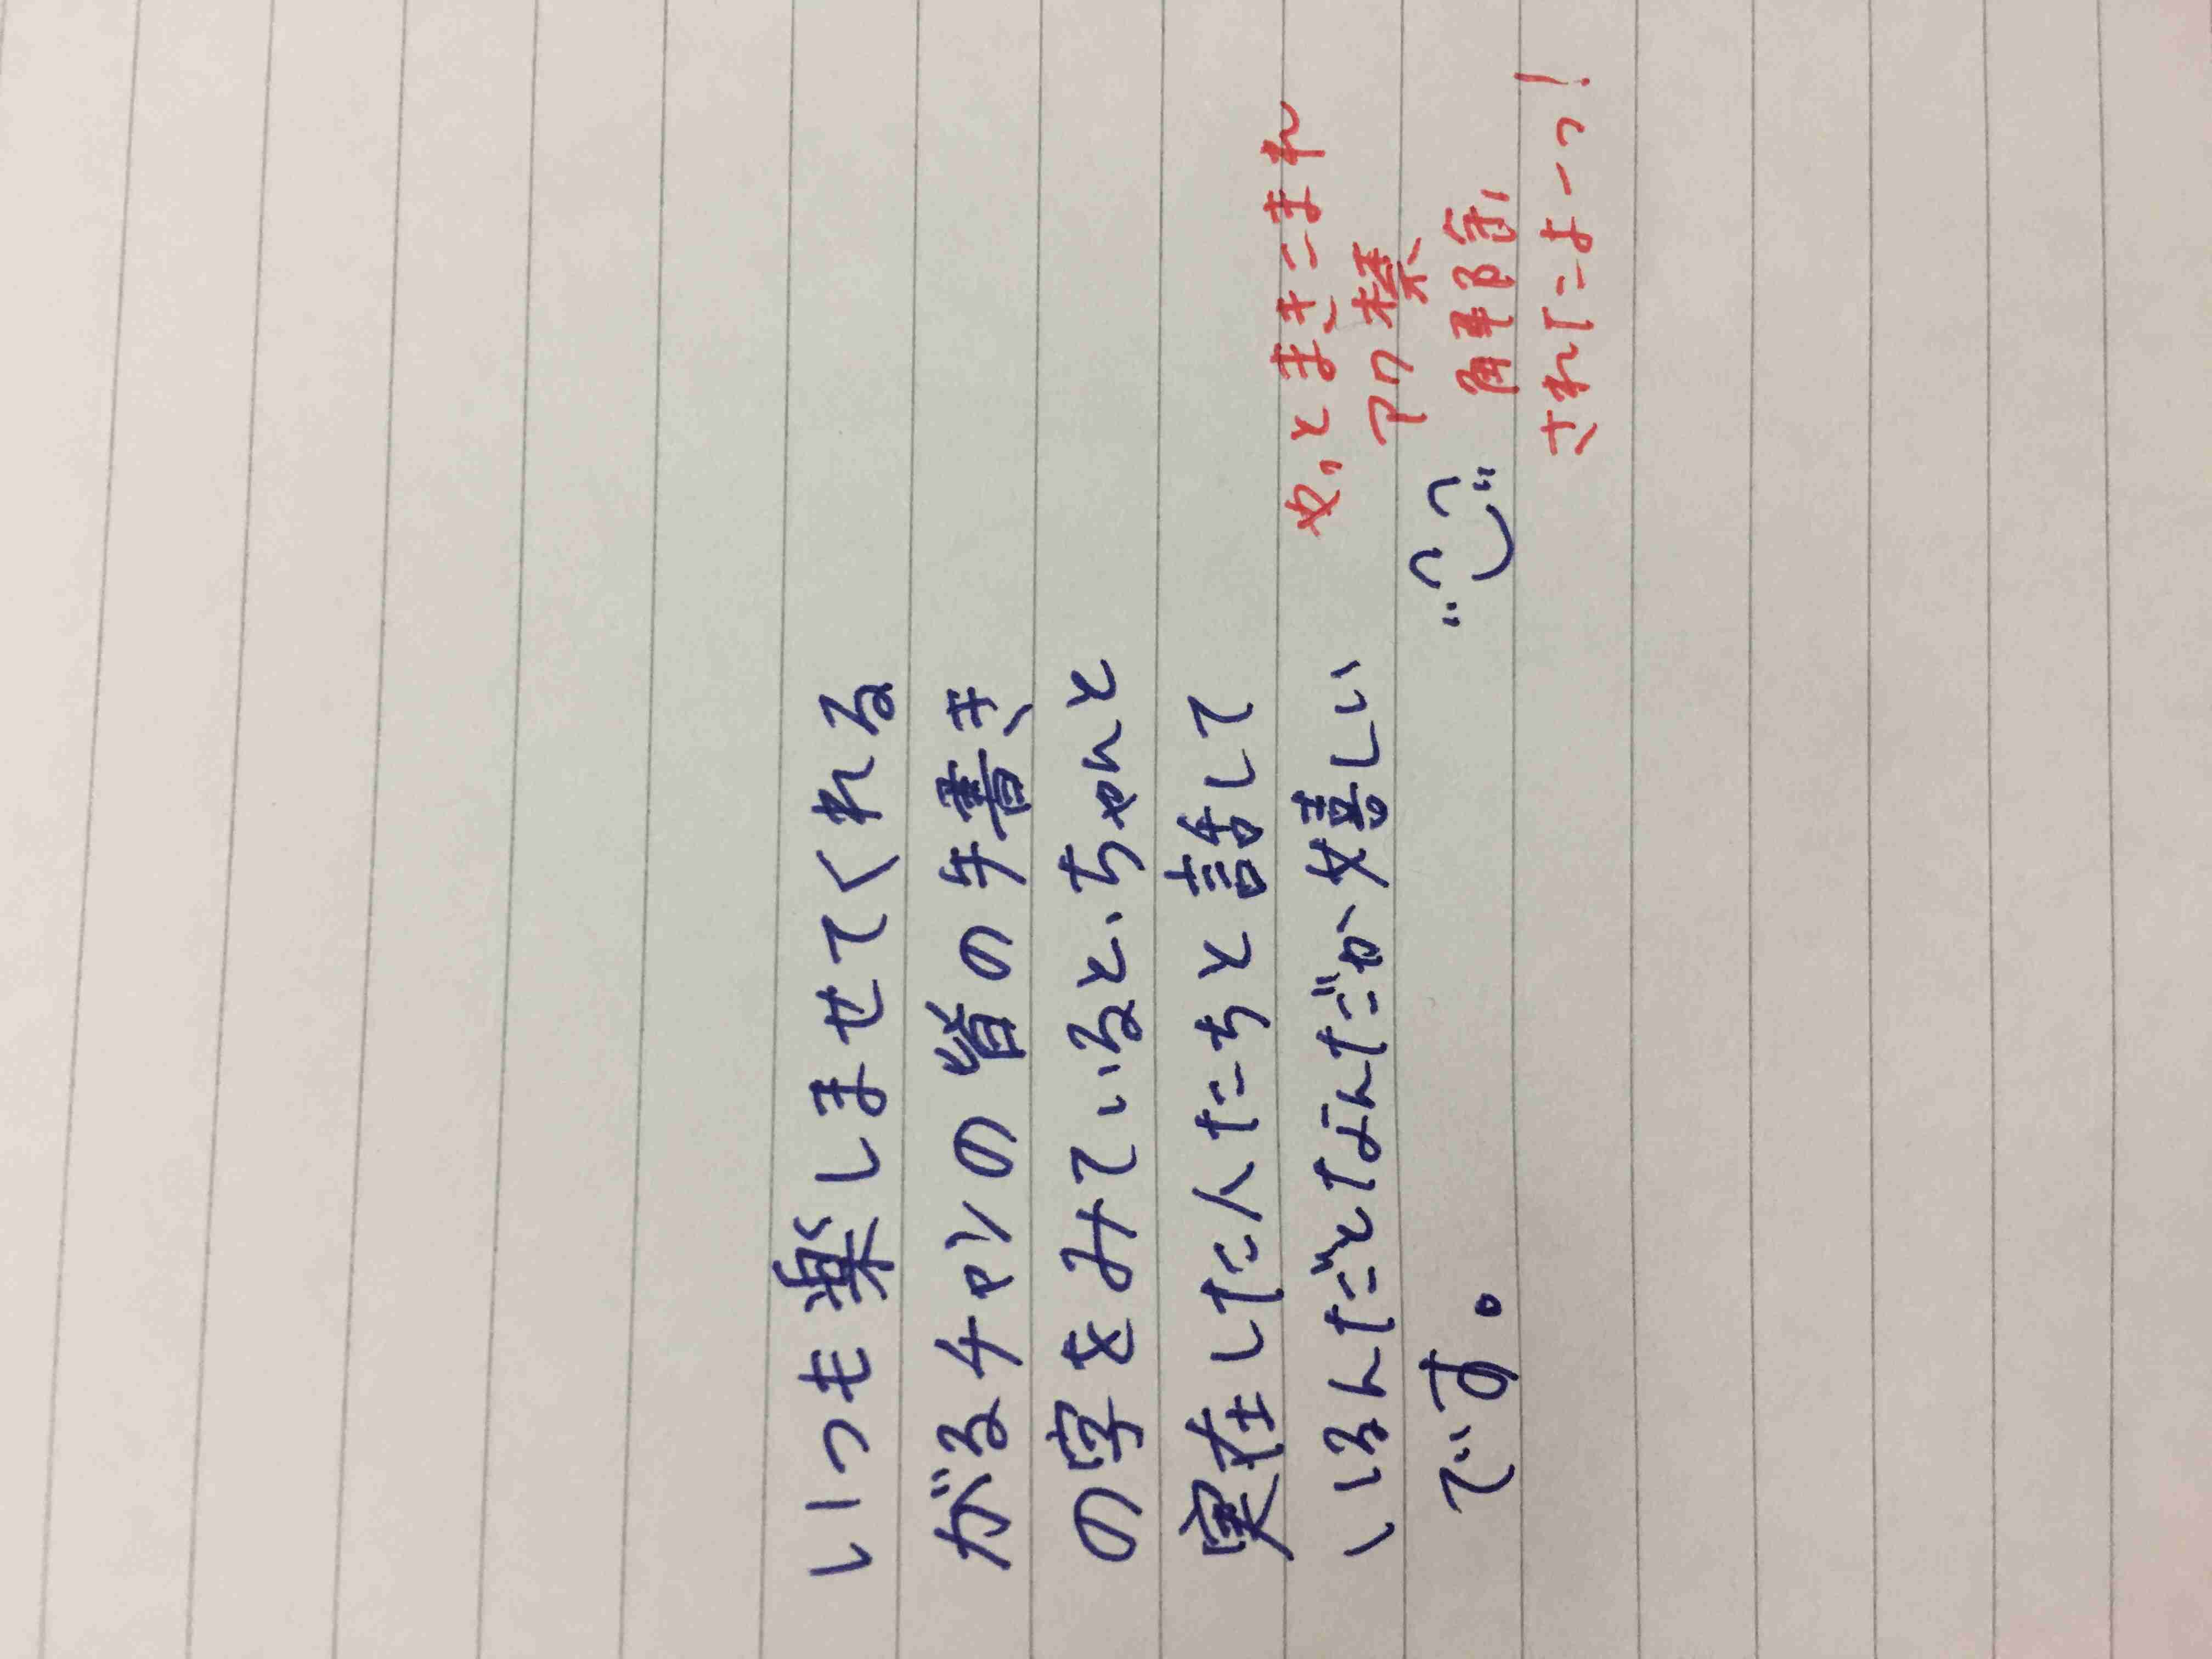 いつも楽しませてくれる
がるチャンの皆の手書き
の字をみていると、ちゃんと
実在した人たちと話して
いるんだなんだか嬉しい
です。
やっとまきこまれ
アク禁
解除
されたよーっ!